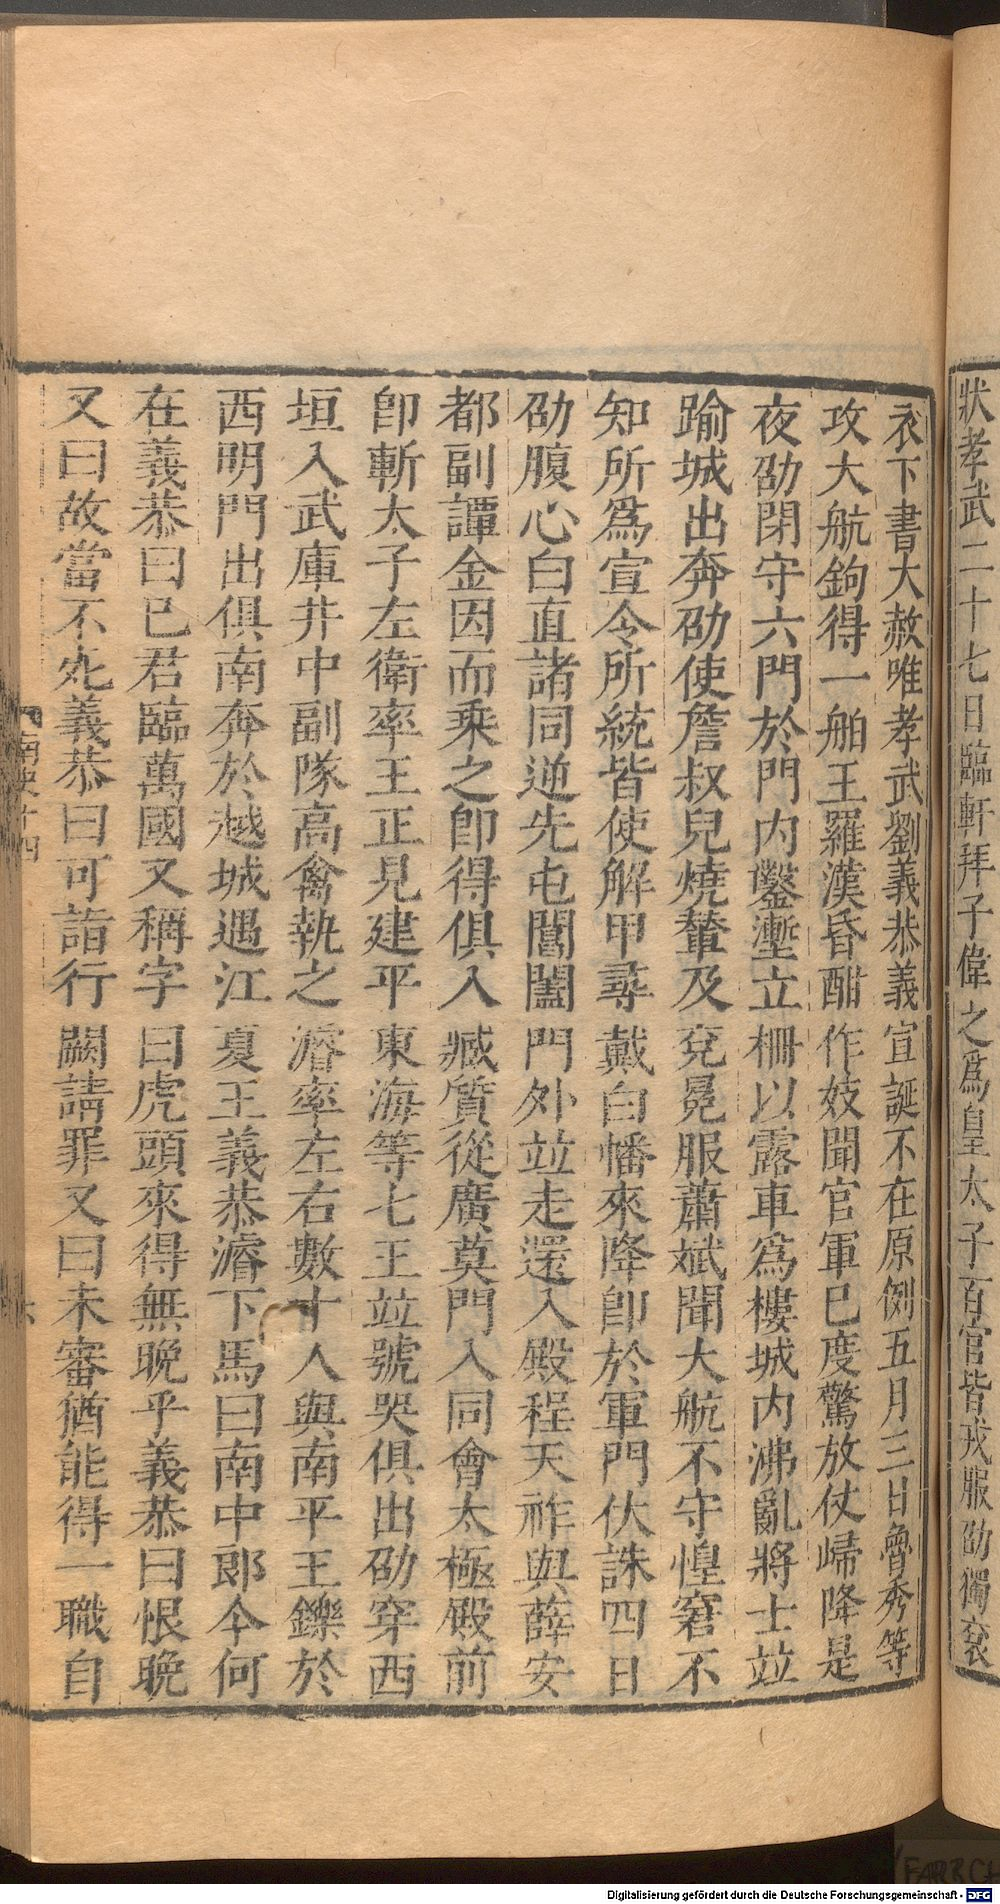 狀孝武二十七日臨軒拜子偉之爲皇太子百官皆戎服劭獨衮
衣下書大赦唯孝武劉義恭義宣誕不在原例五月三日魯秀等
攻大航鉤得一舶王羅漢昏酣作妓聞官軍巳度驚放仗歸降是
夜劭閉守六門於門内鑿壍立柵以露車爲樓城内沸亂將士竝
踰城出奔劭使詹叔兒燒輦及兗冕服蕭斌聞大航不守惶窘不
知所爲宣令所統皆使解甲尋戴白幡來降卽於軍門伏誅四日
劭腹心白直諸同逆先屯閶闔門外竝走還入殿程天祚與薛安
都副譚金因而乗之卽得俱入臧質從廣莫門入同會太極殿前
卽斬太子左衛率王正見建平東海等七王竝號哭俱出劭穿西
垣入武庫井中副隊高禽執之濬率左右數十人與南平王鑠於
西明門出俱南奔於越城遇江夏王義恭濬下馬曰南中郎今何
在義恭曰已君臨萬國又稱字曰虎頭來得無晚乎義恭曰恨晚
又曰故當不死義恭曰可詣行闕請罪又曰未審猶能得一職自
南史十四
六
Digitalisierung gefördert durch die Deutsche Forschungsgemeinschaft - DFG